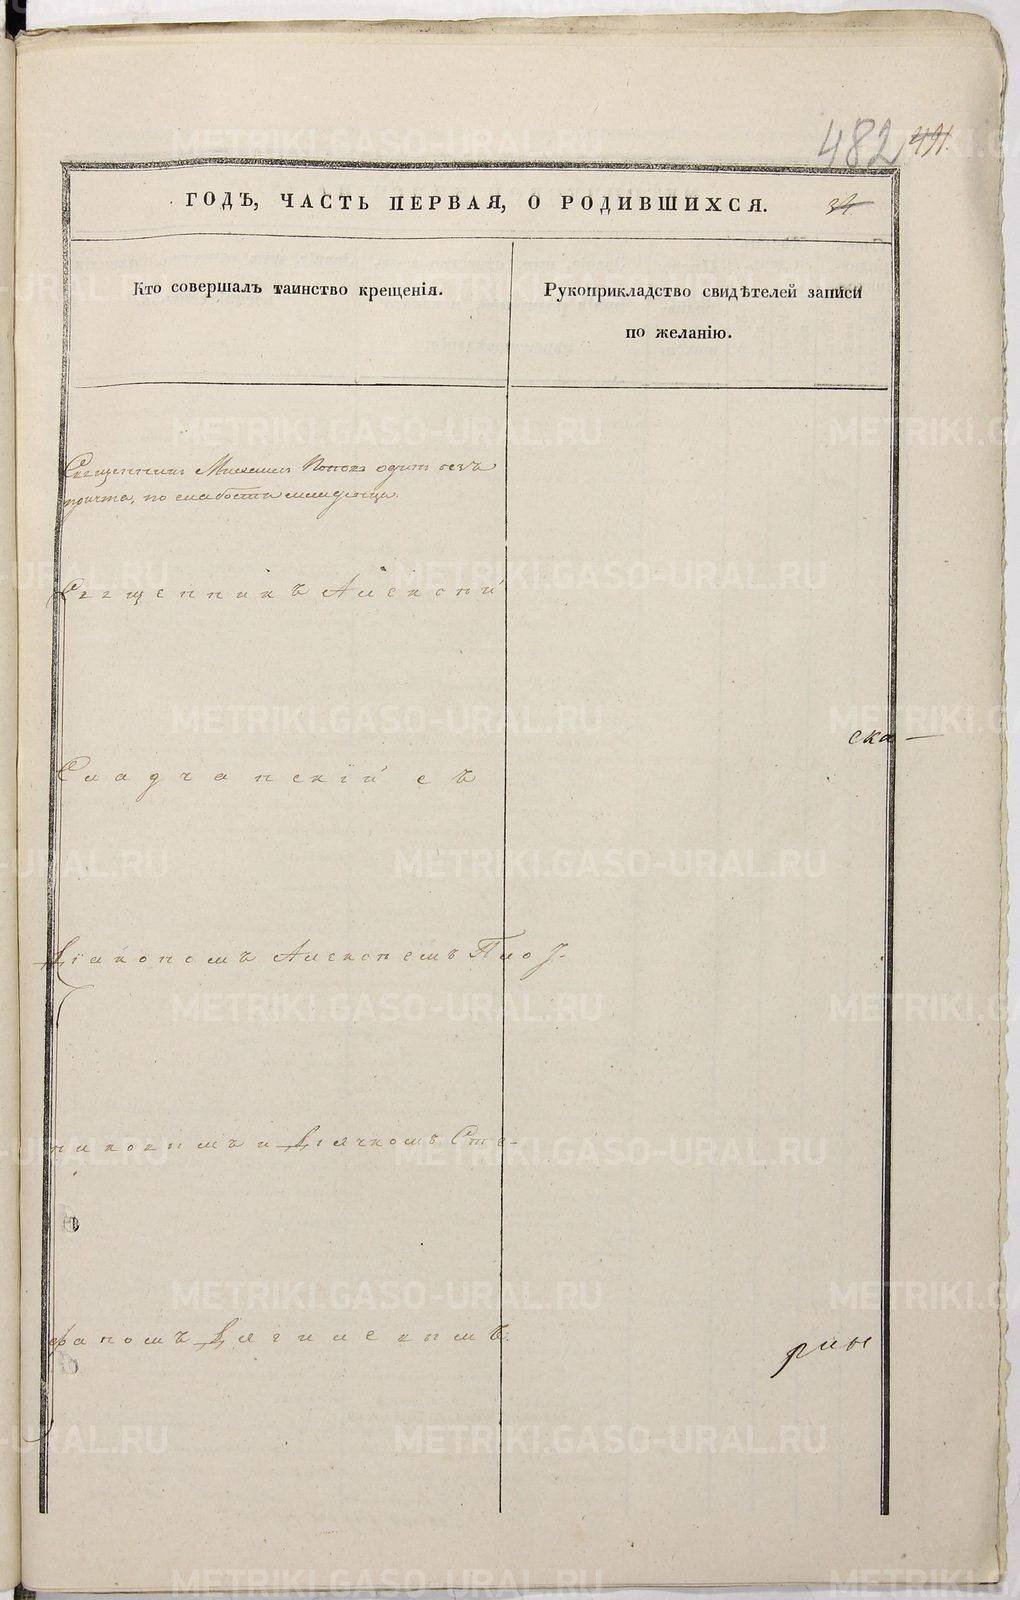 482 441.
ГОДЪ, ЧАСТЬ ПЕРВАЯ, О РОДИВШИХСЯ. 34
Кто совершалъ таинство крещенія.
Рукоприкладство свидѣтелей записи
по желанію.
Священникъ Михаилъ Поповъ одинъ безъ
причта, по слабости младенца.
Священникъ Алексѣй
ска
Сладчанскій съ
Діакономъ Алексѣемъ Плот
никовымъ и Дьячкомъ Сте-
фаномъ
рины
METRIKI.GASO-URAL.RU